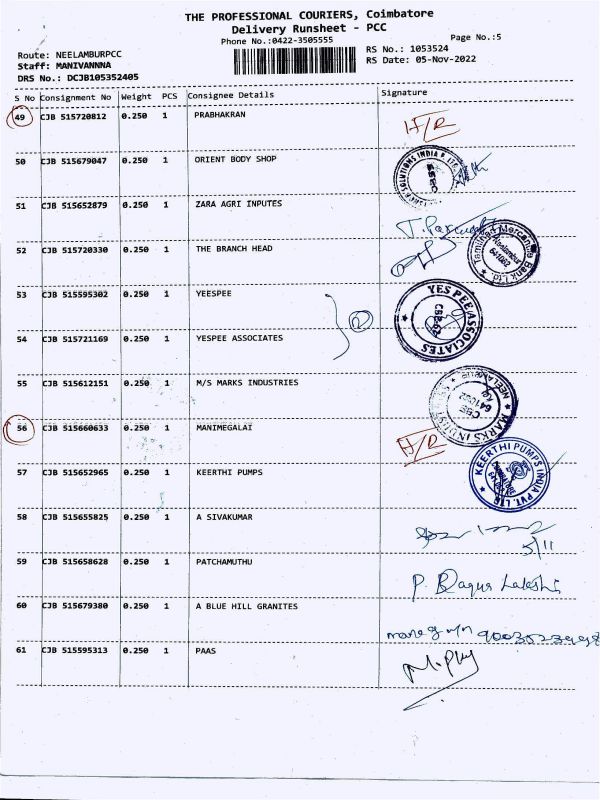 THE PROFESSIONAL COURIERS, Coimbatore
Delivery Runsheet - PCC
Phone No.:0422-3505555
Page No.:5
Route: NEELAMBURPCC
RS No.: 1053524
Staff: MANIVANNNA
RS Date: 05-Nov-2022
DRS No.: DCJB105352405
S No Consignment No Weight PCS Consignee Details Signature
49 CJB 515720812 0.250 1 PRABHAKRAN
50 CJB 515679047 0.250 1 ORIENT BODY SHOP SOLUTIONS INDIA P LTD
51 CJB 515652879 0.250 1 ZARA AGRI INPUTES
52 CJB 515720330 0.250 1 THE BRANCH HEAD Tamilnad Mercantile Bank Ltd. Neelambur 641062
53 CJB 515595302 0.250 1 YEESPEE
2 YES PEE ASSOCIATES CBE-62
54 CJB 515721169 0.250 1 YESPEE ASSOCIATES
55 CJB 515612151 0.250 1 M/S MARKS INDUSTRIES MARKS INDUSTRIES CBE 641062
56 CJB 515660633 0.250 1 MANIMEGALAI
57 CJB 515652965 0.250 1 KEERTHI PUMPS KEERTHI PUMPS INDIA PVT. LTD
58 CJB 515655825 0.250 1 A SIVAKUMAR
5/11
59 CJB 515658628 0.250 1 PATCHAMUTHU
60 CJB 515679380 0.250 1 A BLUE HILL GRANITES
61 CJB 515595313 0.250 1 PAAS